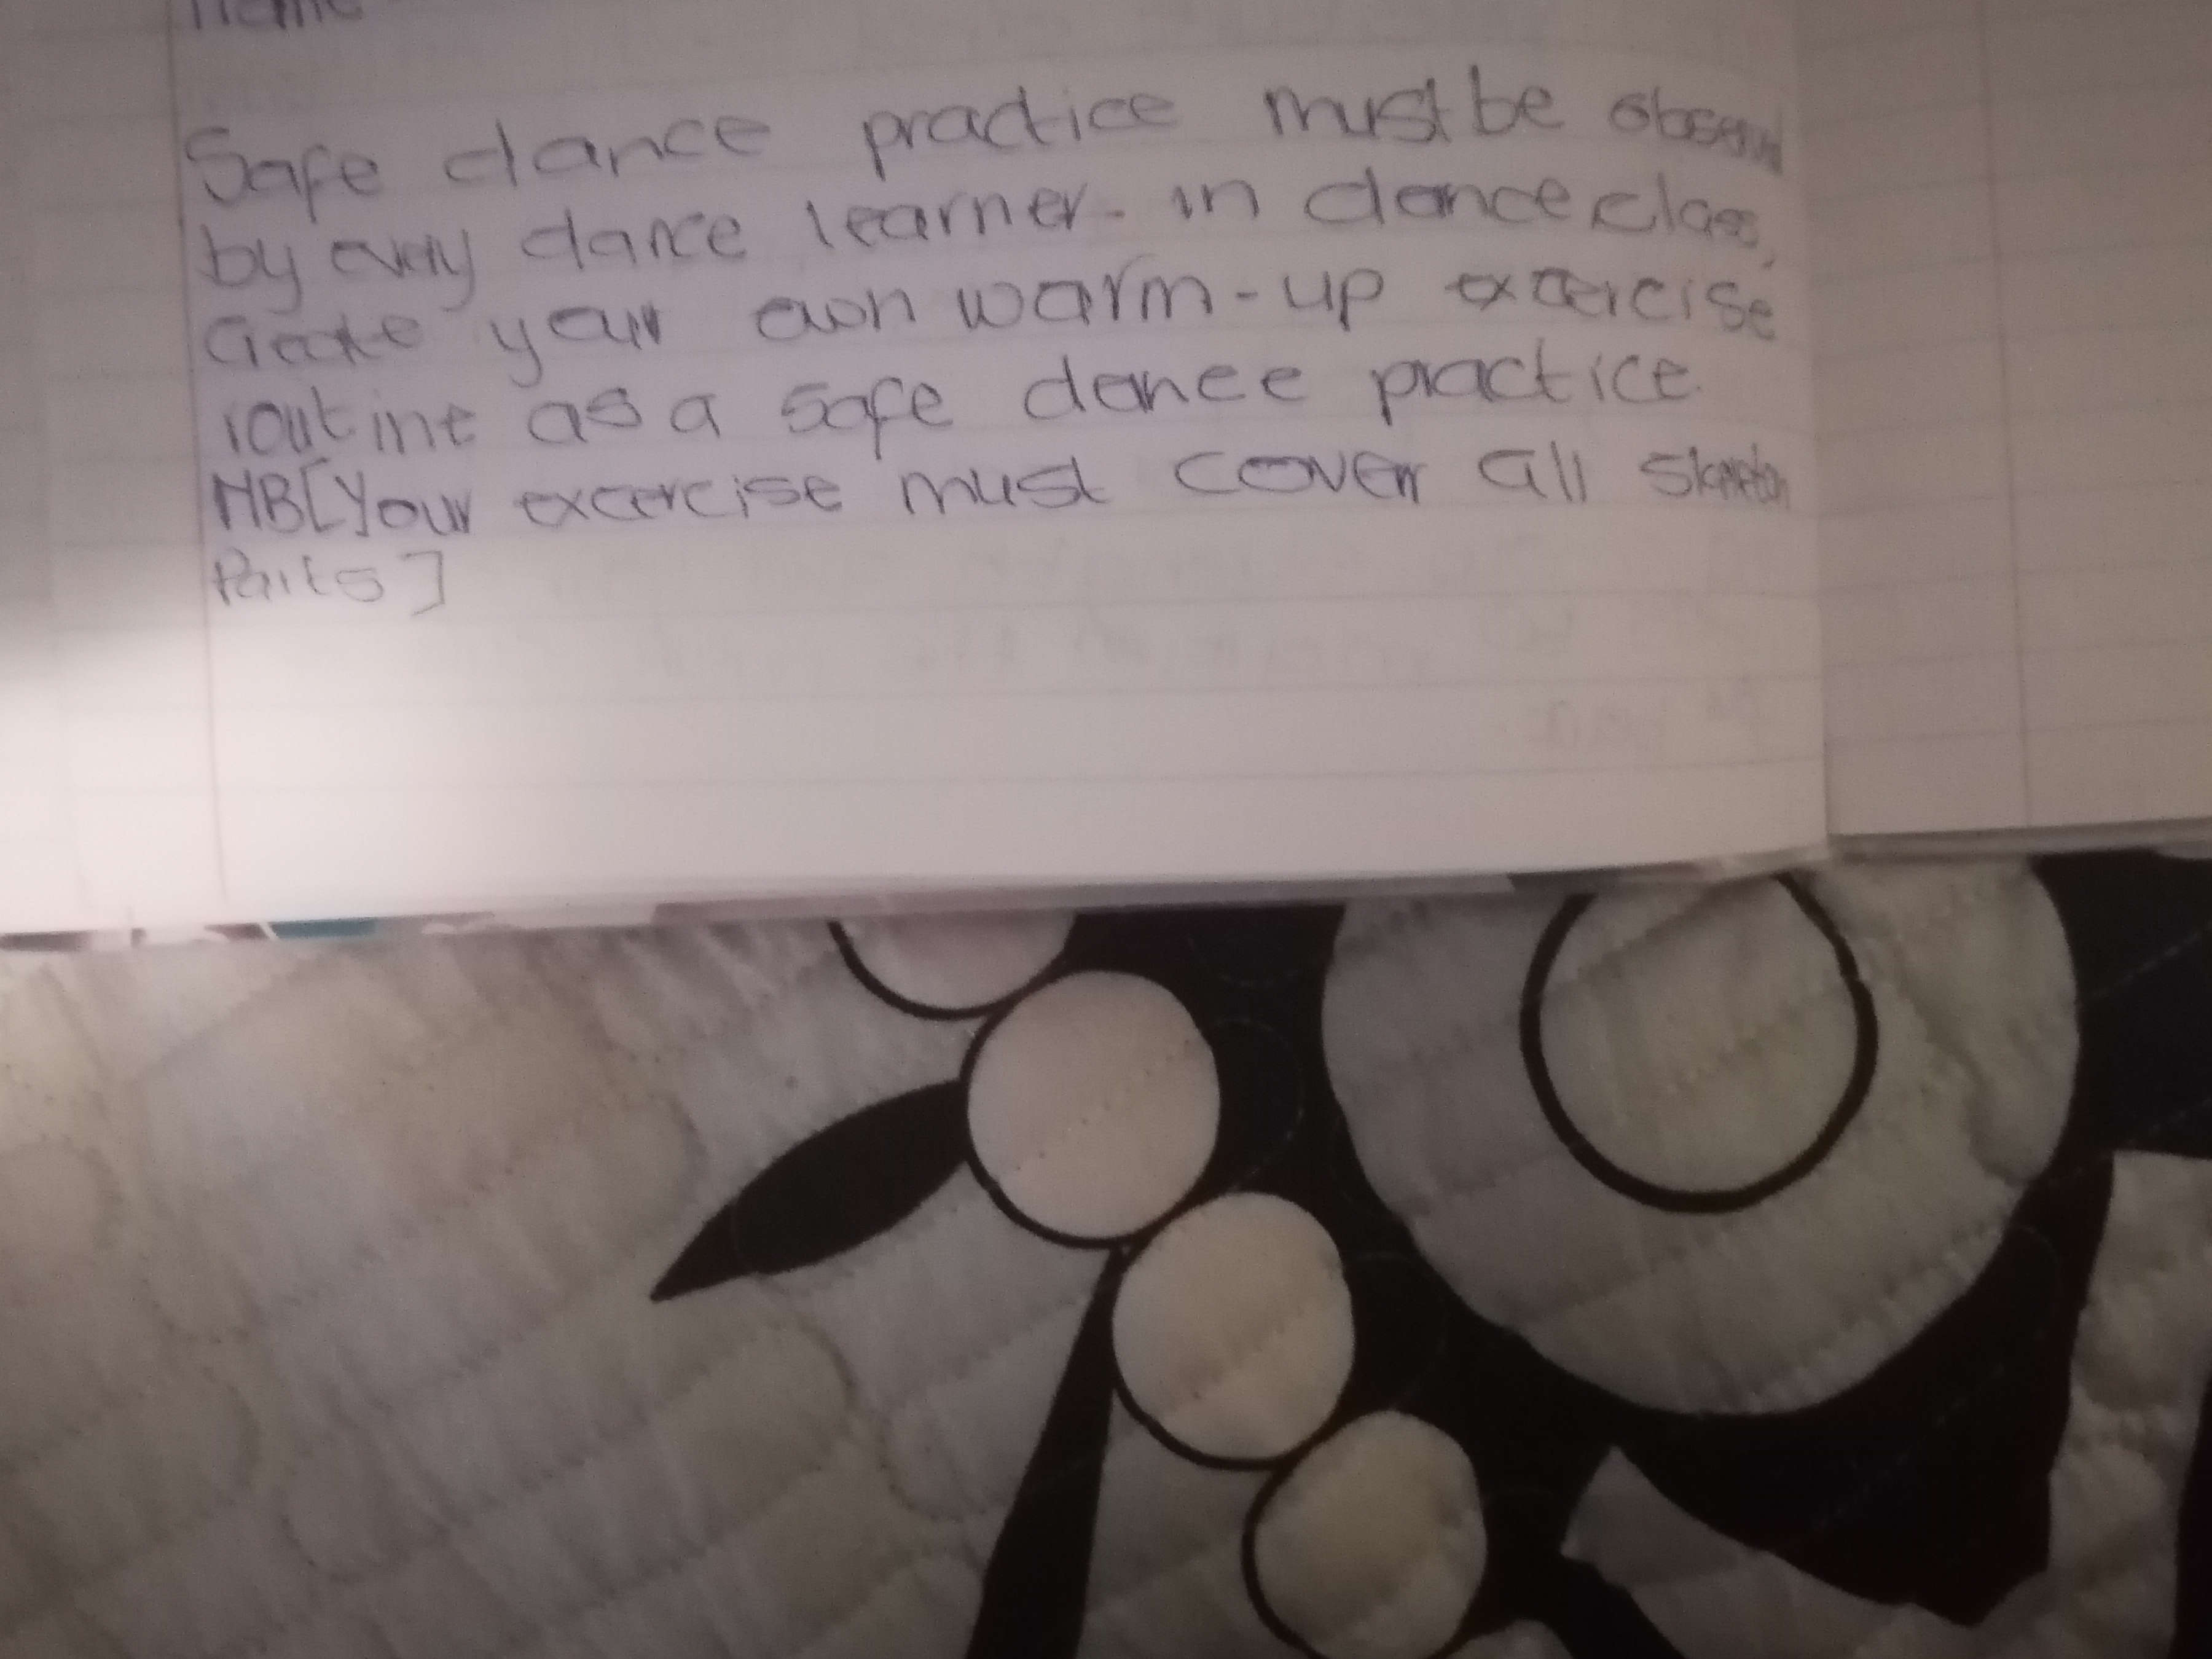 name
Safe dance practice must be
by every dance learner. in dance class,
Create your own warm-up excercise
routine as a safe dance practice
NB[Your excercise must cover all
Parts]